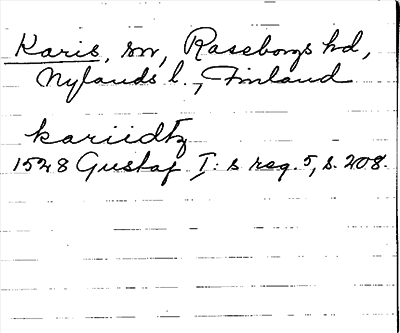 Karis, sn, Raseborgs hd,
Nylands l., Finland
kariidtz
1528 Gustaf I:s reg. 5, s. 208.